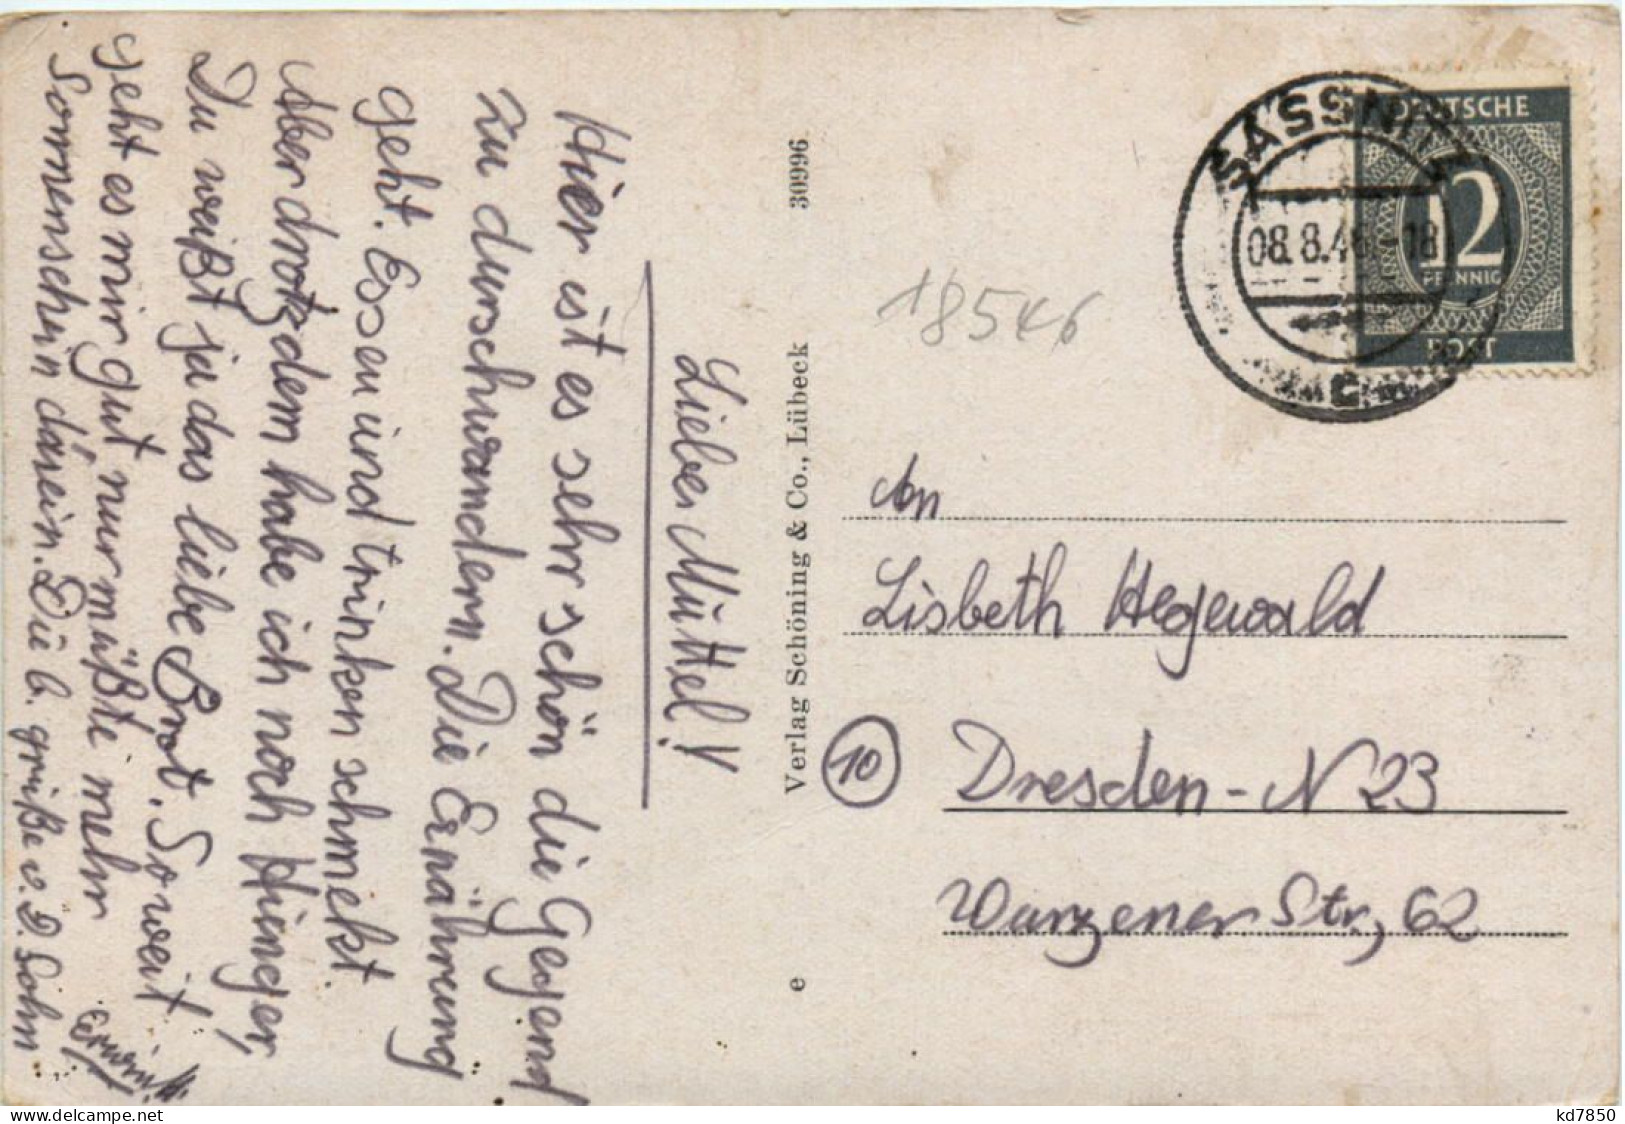 Lieber Müttel!
Hier ist es sehr schön die Gegend
zu durschwandern. Die Ernährung
geht. Essen und trinken schmekt.
Aber drotzdem habe ich noch Hünger,
Du weißt ja das liebe Brot. So weit
geht es mir gut nur müßte mehr
Sonnenschein darein. Die b. grüße v. D. Sohn
Erwin
e Verlag Schöning & Co., Lübeck 30996
SASSNITZ
08.8.46-18
c
DEUTSCHE
12
PFENNIG
POST
18546
An
Lisbeth Hegewald
10
Dresden-N 23
Wurzener Str, 62
www.delcampe.net
kd7850